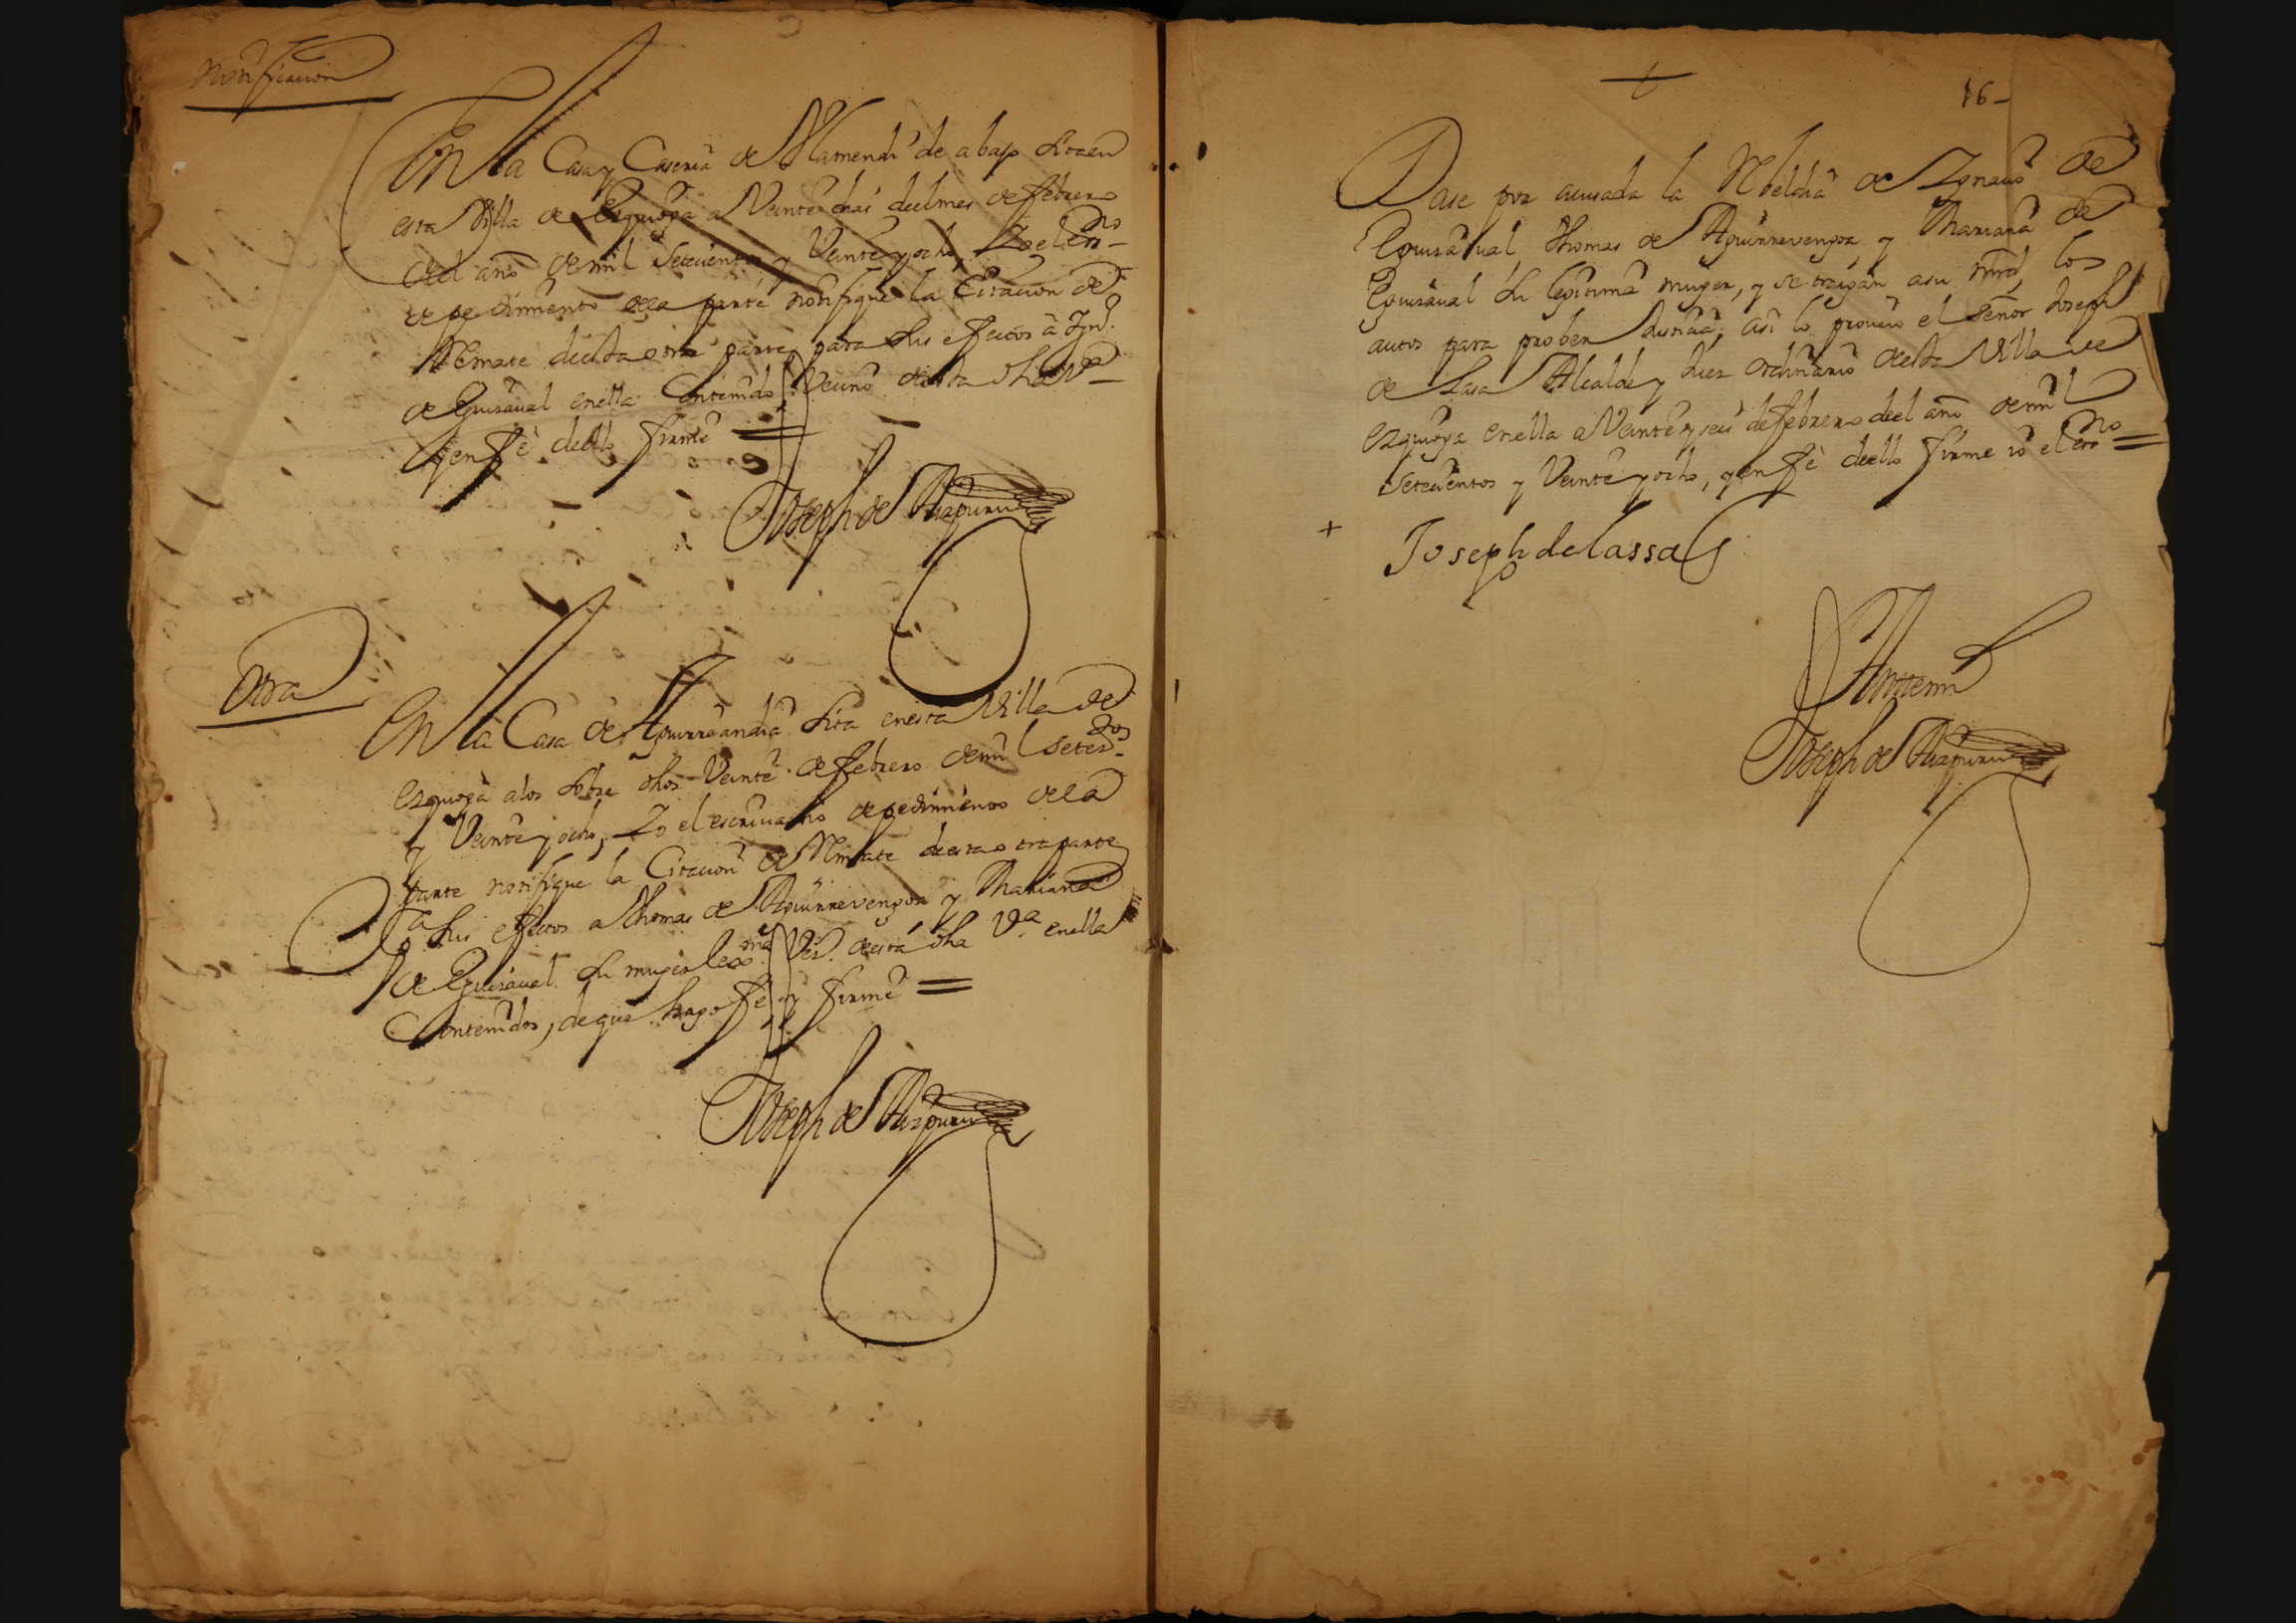 Notificacion
En la Casa y Caseria de Alamendi de abajo sita en
esta Villa de Ezquioga a Veinte dias del mes de febrero
del año de mil Setecientos y Veinte y ocho, Yo el essno
de pedimiento de la parte notifique la Citacion de
Remate de esta otra parte para sus efectos â Ign.o
de Eguisaual en ella Contenido Vecino de esta dha Va
y en fè de ello firmè =
Joseph de Aizpuru
Otra
En la Casa de Aguirreandia sita en esta Villa de
ezquioga a los sobre dhos Veinte de febrero de mil setezos
y Veinte y ocho, Yo el escriuano de pedimiento de la
parte notifique la Citacion de Rmate de esta otra parte
Pa sus efectos a Thomas de Aguirrevengoa y Mariana
de Eguisaual su muger lexma Vezs. de esta dha Va en ella
Contenidos, de que hago fè y firmè =
Joseph de Aizpuru
16-
Dase por acusada la Rebeldia de Ignacio de
Eguisaual, Thomas de Aguirrevengoa, y Mariana de
Eguisaual su legitima muger, y se traigan a su mrd, los
autos para probeer Justicia; asi lo proueio el señor Joseph
de Lasa Alcalde y Juez ordinario de esta Villa de
ezquioga en ella a Veinte y seis de febrero de el año de mil
Setecientos y Veinte y ocho, y en fè de ello firme io el essno =
Joseph de lassa
Ante mi
Joseph de Aizpuru